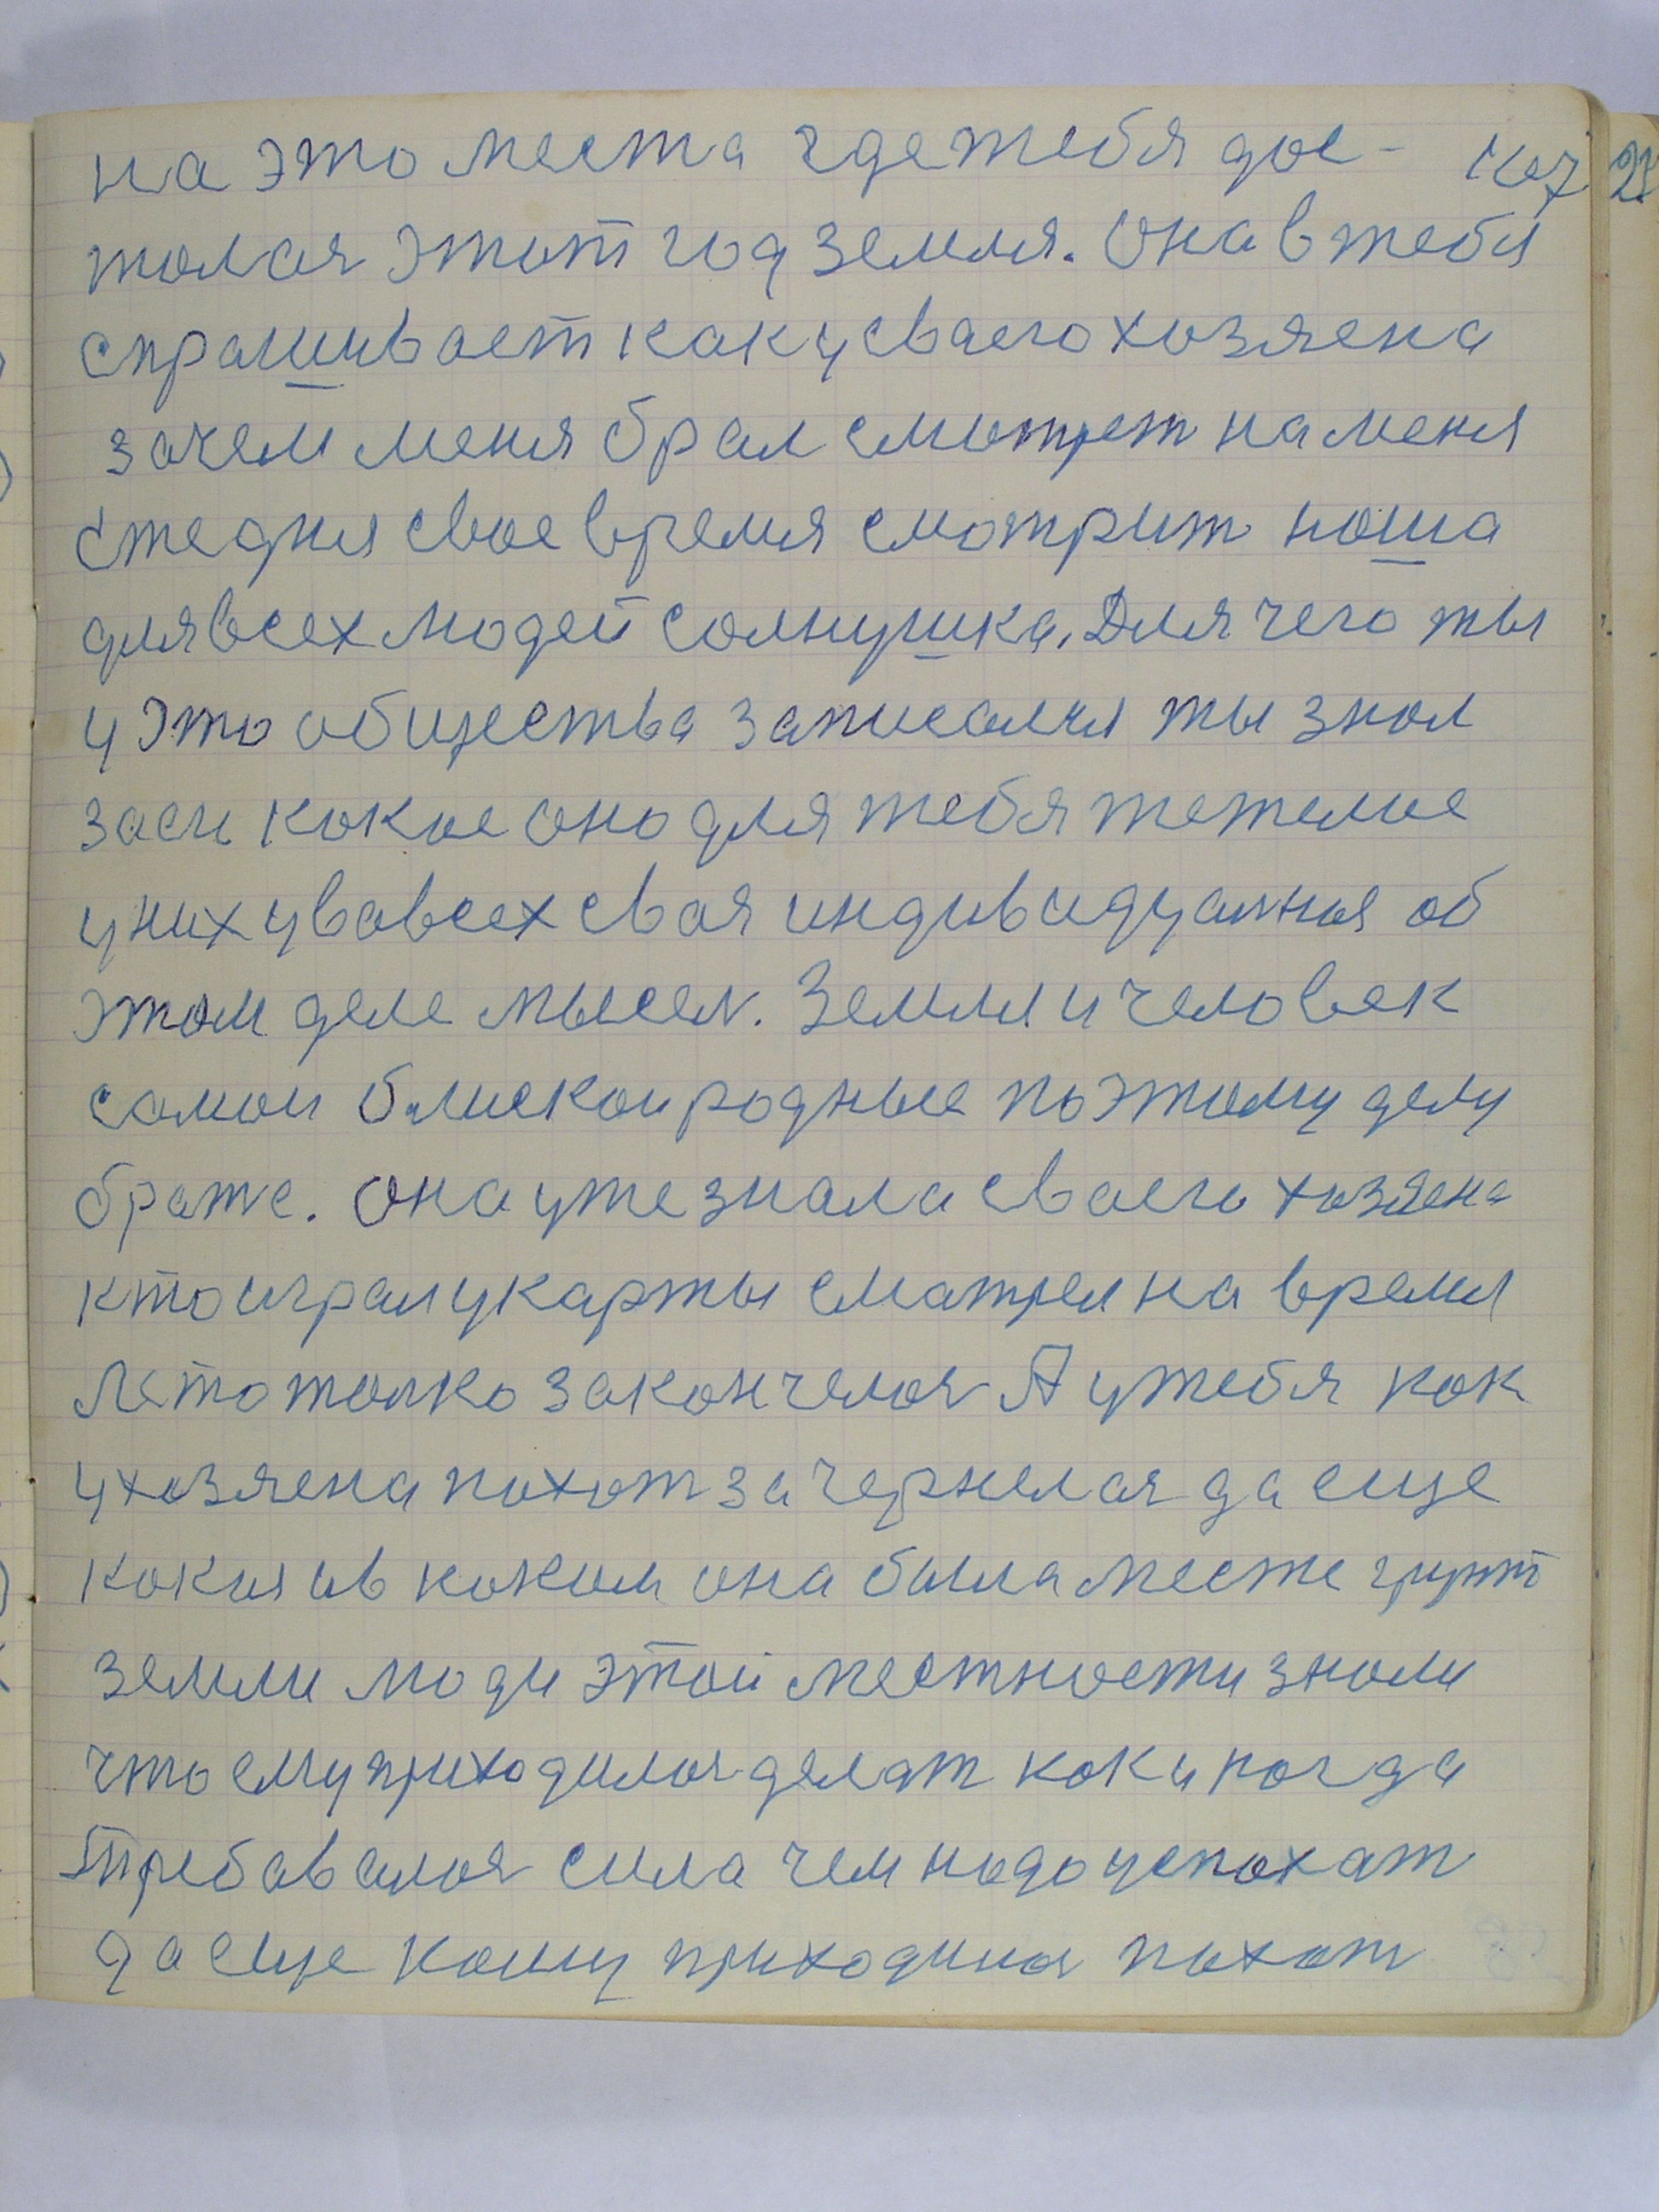 на это места где тебя дос-
толая этот год земля. Она в тебя
спрашивает как у сваего хозяена
зачем меня брал смотрет на меня
Ежедня свое время смотрит наша
для всех людей солнушка. Для чего ты
у это общества записался ты знал
заси кокое оно для тебя тежелое
у них у вавсех свая индивидуалная об
этом деле мысел. Земля и человек
самои блискои родные по этому делу
братя. Она уже знала сваего хозяена
кто играл у карты сматрел на время
Лето толко закончелоя А у тебя как
у хозяена пахот зачернелая да еще
кокия ив коком она была месте грунт
земли люди этой местности знали
что ему приходилоя делат как и когда
Требавалоя сила чем надо успахат
да еще кому приходилоя пахат